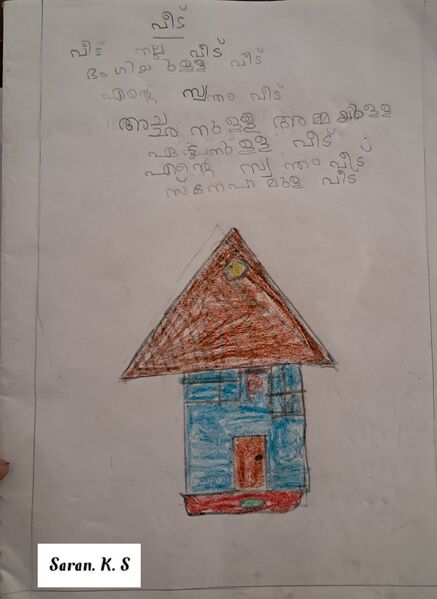 വീട്
വീട് നല്ല വീട്
ഭംഗിയുള്ള വീട്
എന്റെ സ്വന്തം വീട്
അച്ഛനുള്ള അമ്മയുള്ള
ഏട്ടനുള്ള വീട്
എന്റെ സ്വന്തം വീട്
സ്നേഹമുള്ള വീട്
Saran. K. S